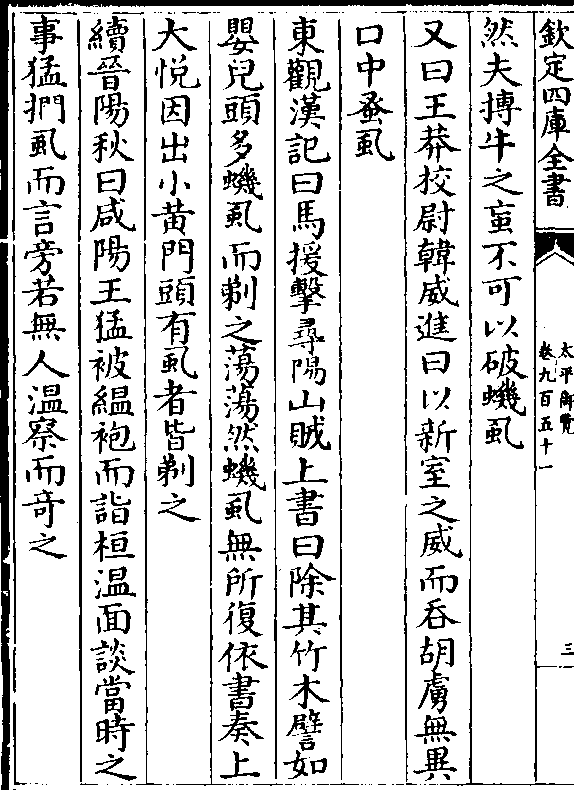 欽定四庫全書
太平御覽
卷九百五十一
三
然夫搏牛之䖟不可以破蟣虱
又曰王莽校尉韓威進曰以新室之威而吞胡虜無異
口中蚤虱
東觀漢記曰馬援擊尋陽山賊上書曰除其竹木譬如
嬰兒頭多蟣虱而剃之蕩蕩然蟣虱無所復依書奏上
大悅因出小黃門頭有虱者皆剃之
續晉陽秋曰咸陽王猛被縕袍而詣桓溫面談當時之
事猛捫虱而言旁若無人溫察而奇之